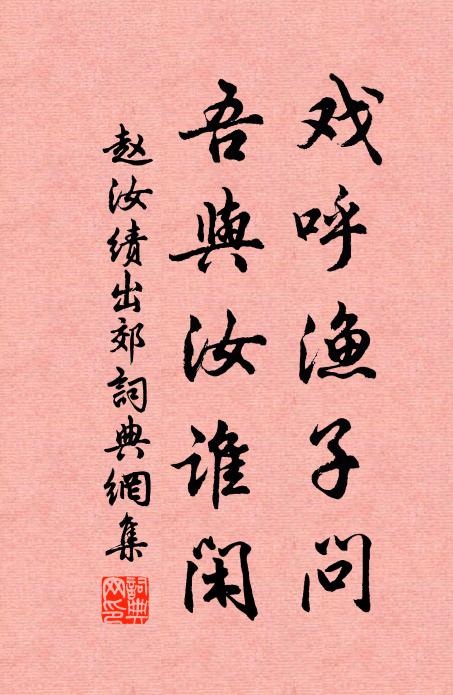 戏呼渔子问
吾與汝谁闲
赵汝绩出郊詞典網集
詞典網印